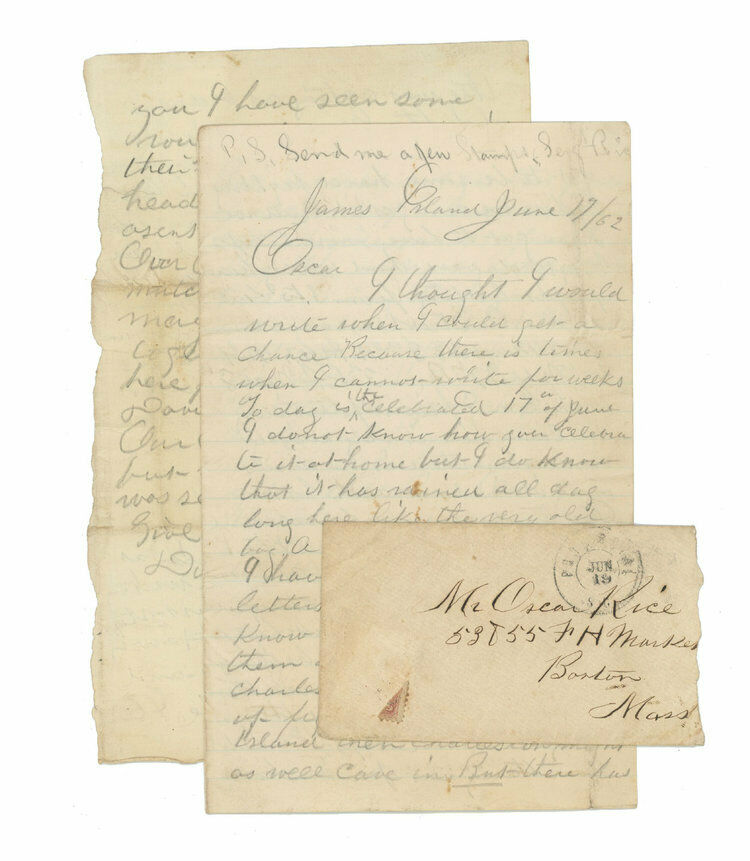 you I have seen some
rou
their
head
asent
Over
matc
mar
toge
here
Davi
Our
but
was se
Give
Da
P.S. Send me a few Stamps,
James Island June 17/62
Oscar I thought I would
write when I could get a
chance Because there is times
when I cannot write for weeks
To day is the Celebrated 17th of June
I do not know how you Celebra
te it at home but I do know
that it has rained all day
long here like the very old
boy. A
I hav
letters
Know
them
charles
up
Island then Charleston might
as well cave in, But there has
JUN
19
Mr Oscar Rice
53 & 55 F H Market
Boston
Mass